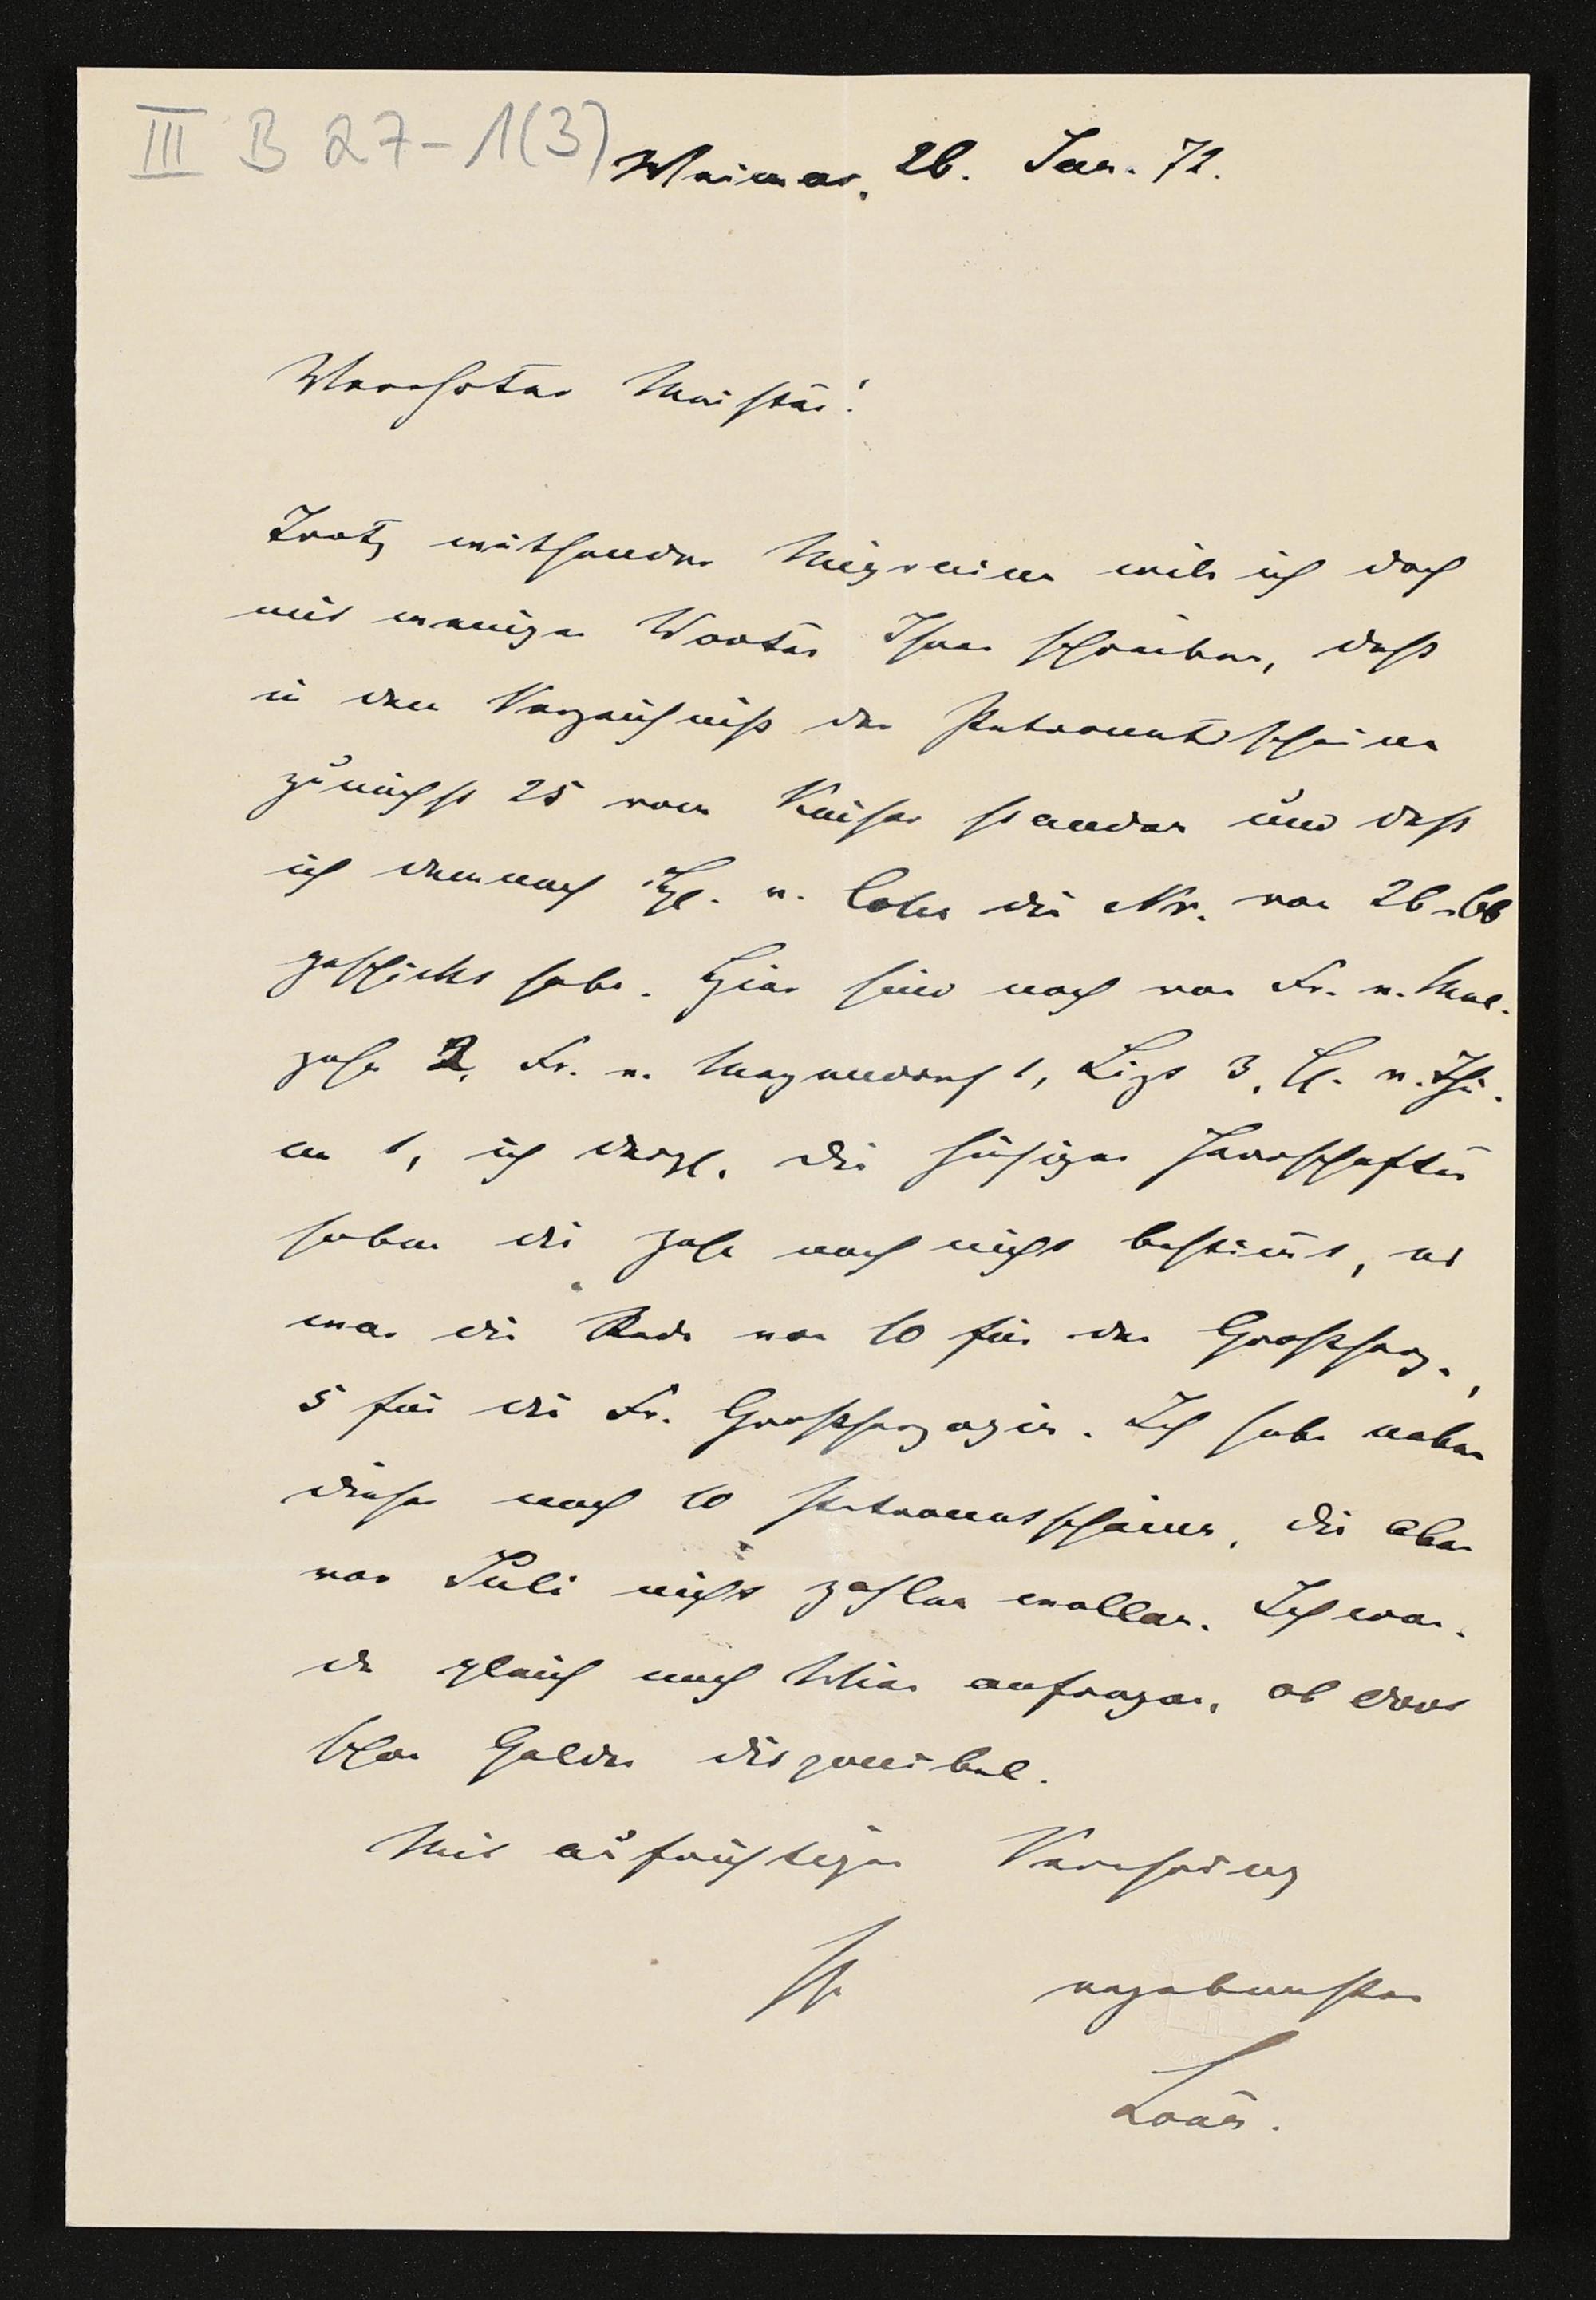 III B 27-1(3)
Weimar, 26. Jan. 72.
Verehrter Meister!
Trotz wüthender Migraine will ich doch
mit wenigen Worten Ihnen schreiben, daß
in dem Verzeichniß der Patronatsscheine
zunächst 25 vom Kaiser standen und daß
ich demnach v. Loën die Nr. von 26-66
geschickt habe. Hier sind noch von Fr. v.
2, Fr. v. Meyendorff 1, Liszt 3, H. v.
1, ich desgl. Die hiesigen Herrschaften
haben die Zahl noch nicht bestimt, es
war die Rede von 10 für den Großherz.,
5 für die Fr. Großherzogin. Ich habe neben
diesen noch 10 Patronatsscheine, die aber
vor Juli nicht zahlen wollen. Ich wer-
de gleich nach Wien anfragen, ob dort
schon Gelder disponibel.
Mit aufrichtiger Verehrung
Ihr ergebenster
Loën.